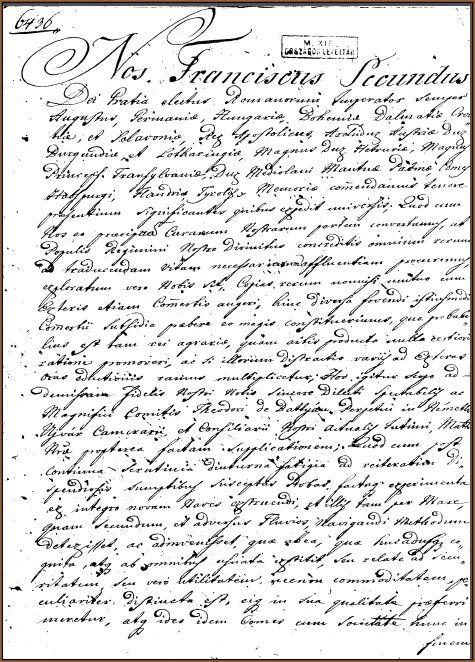 6436
M. KIR.
ORSZÁGOS LEVÉLTÁR
Nos Franciscus Secundus
Dei Gratia electus Romanorum Imperator Semper
Augustus, Germaniæ, Hungariæ, Bohemiæ Dalmatiæ Croa-
tiæ, et Sclavoniæ Rex Apostolicus, Archidux Austriæ Dux
Burgundiæ et Lotharingiæ, Magnus Dux Hetruriæ, Magnus
Princeps Transylvaniæ, Dux Mediolani Mantuæ Parmæ Comes
Habspurgi, Flandriæ Tyrolis, Memoriæ comendamus tenore
præsentium significantes quibus expedit universis. Quod cum
Nos eo præcipuam Curarum Nostrarum partem convertamus, ut
Populis Regimini Nostro Divinitus concreditis omnium rerum
ad traducendam vitam necessariam affluentiam procuremus,
exploratum vero Nobis sit, Copias rerum nonnisi mutuo cum
Exteris etiam Comertio augeri, hinc diversa fovendi istiusmodi
Comertii Subsidia præbere eo magis constituerimus, quo probabi-
lius est tam rei agrariæ, quam artis producta nulla rectiori
ratione promoveri, ac si illorum Distractio variis ad Exteras
oras multiplicetur; Hoc igitur
demissam Fidelis Nostri Nobis Sincere Dilecti Spectabilis ac
Magnifici Comitis Theodori de Batthyan, Perpetui in Németh
Ujvar Camerarii, et Consiliarii Nostri Actualis Intimi, Mati
Nræ propterea factam Supplicationem; Quod cum post
continua Scrutinii diuturna fatigia ad reiterata Di-
spendiosis Sumptibus Susceptas Probas, factaque experimenta
ex integro novam Naves extruendi, et illis tam per Mare,
quam secundum, et adversus Fluvios, Navigandi Methodum
detexisset, ac adinvenisset, quæ ab ea, quæ hucadusque co-
gnita, atque ab omnibus usuata extitit, seu relate ad secu-
ritatem, seu vero utilitatem, recenter commoditatem, pe-
culiariter distincta est, eique in sua qualitate præferri
meretur, atque ideo idem Comes cum Societate hunc in
finem